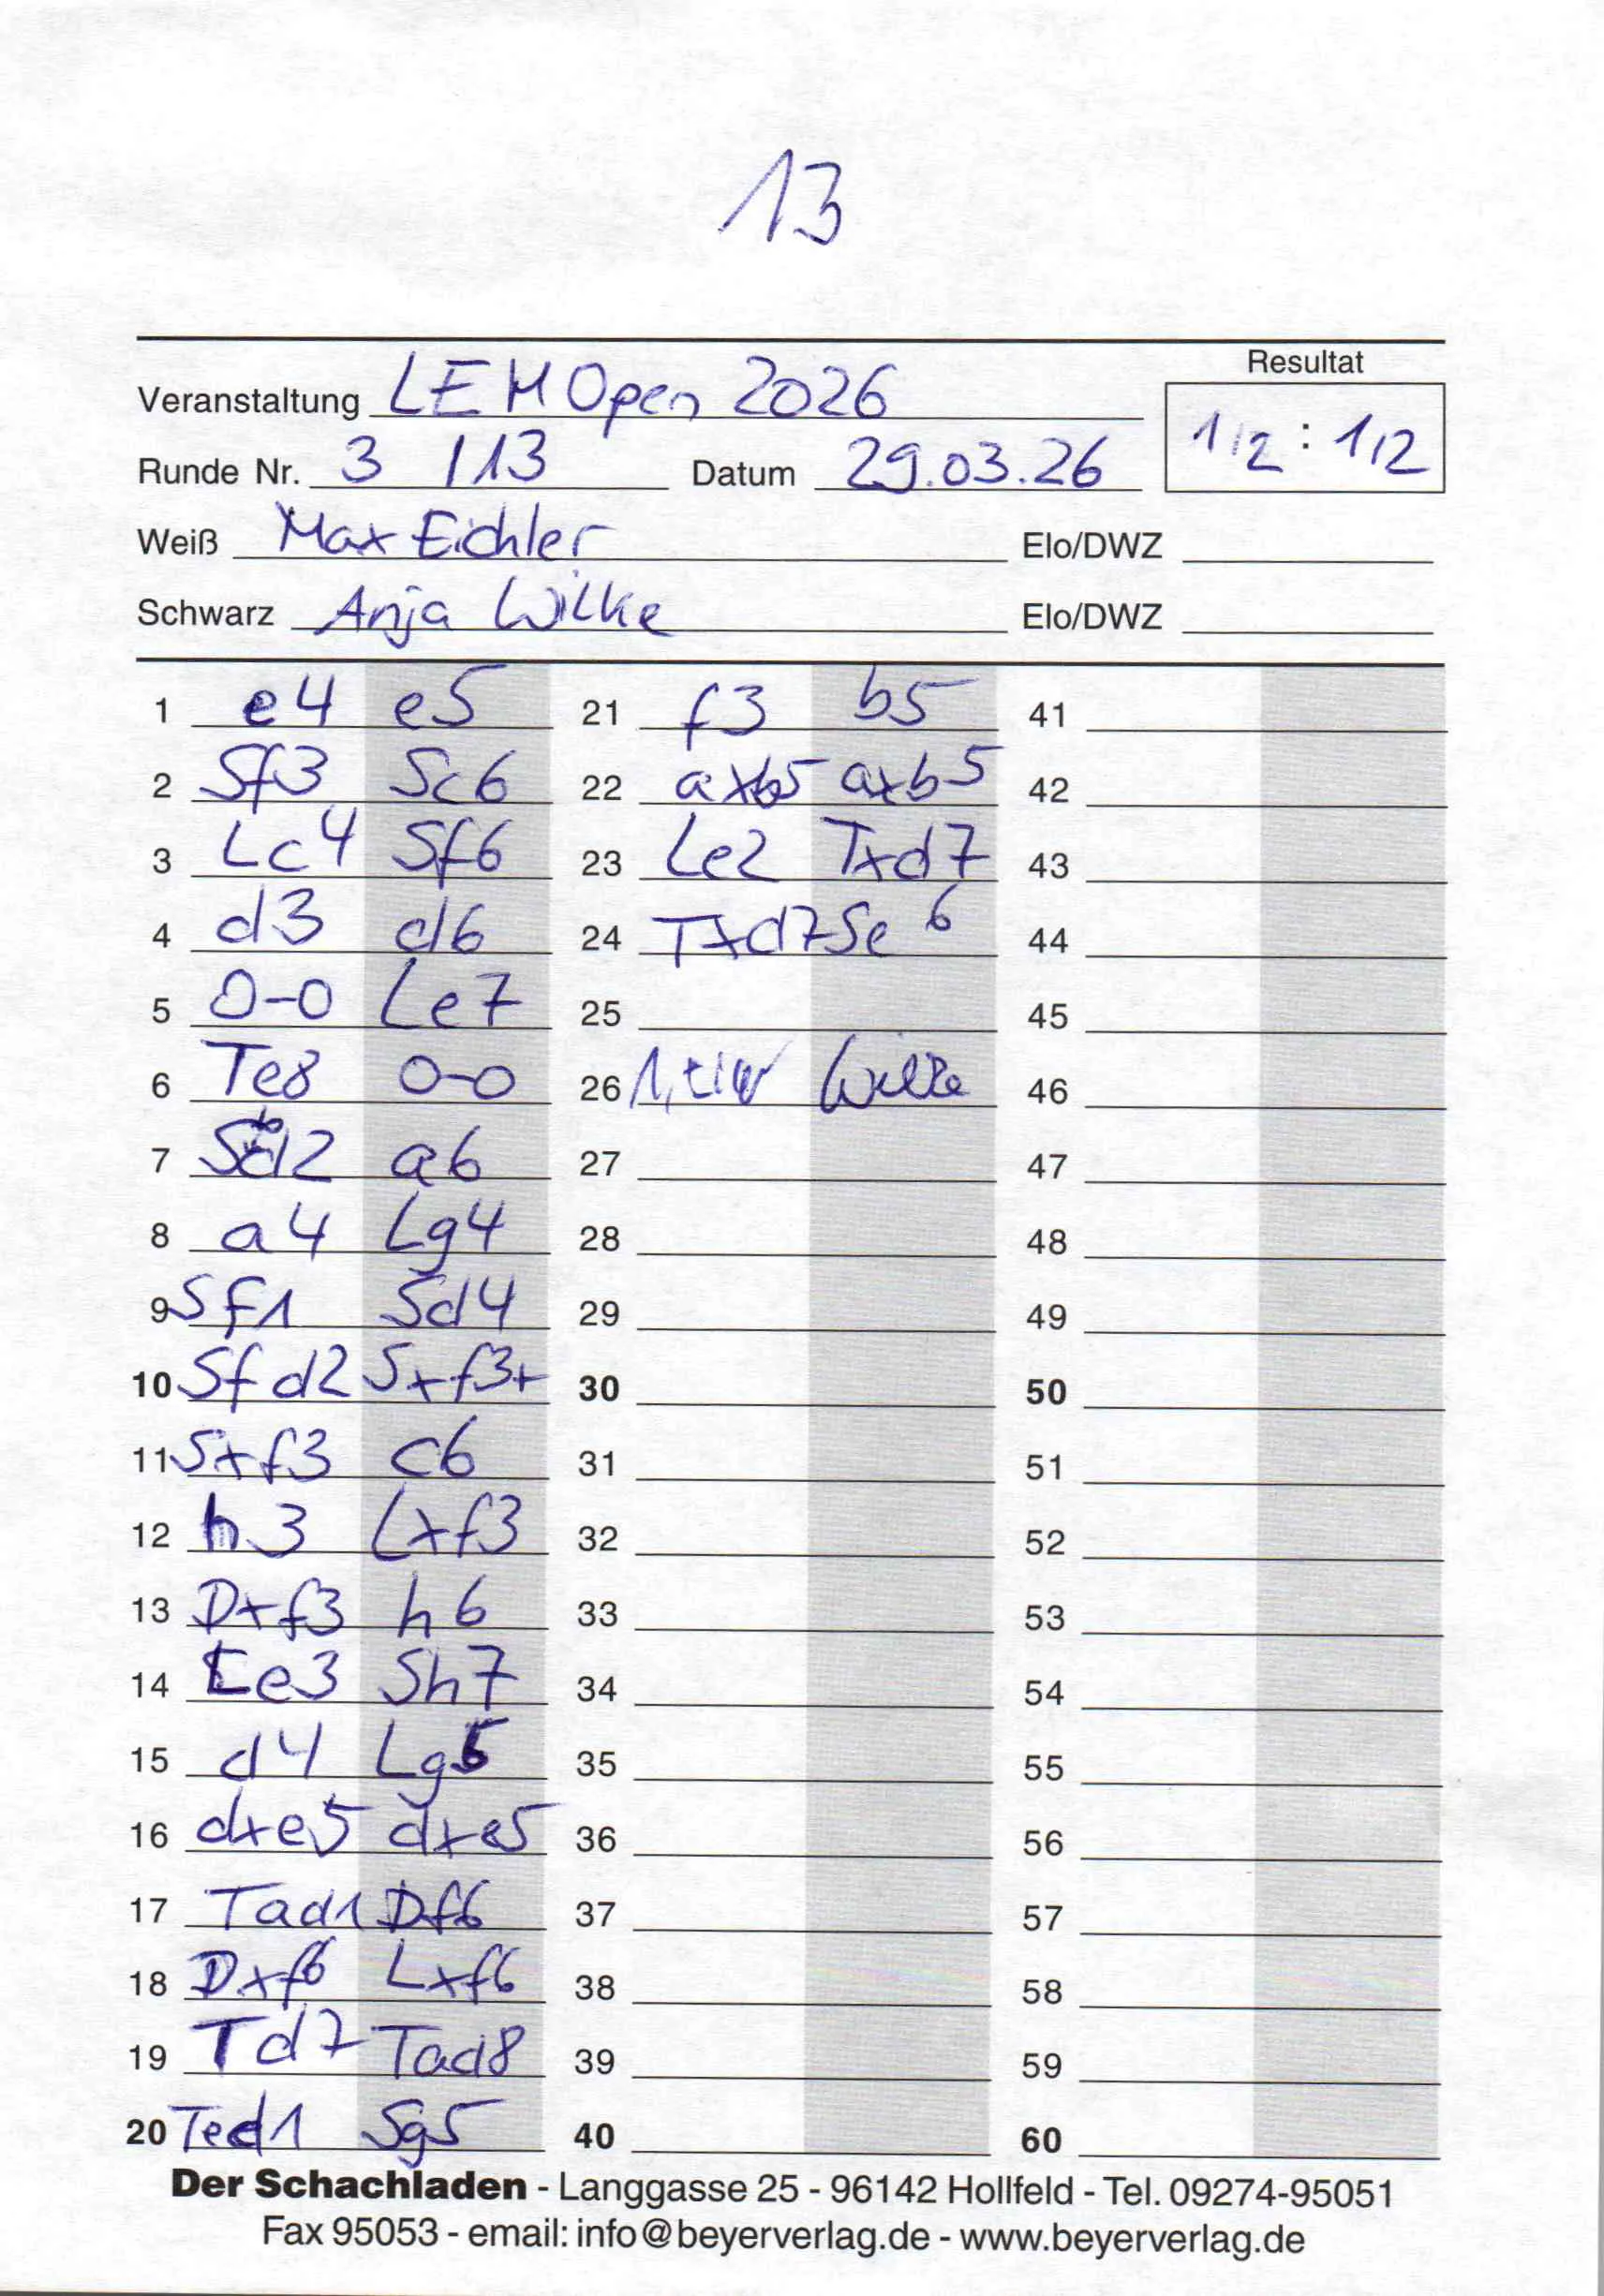 13
Resultat
Veranstaltung LEM Open 2026
1/2 : 1/2
Runde Nr. 3 / 13 Datum 29.03.26
Weiß Max Eichler Elo/DWZ
Schwarz Anja Wilke Elo/DWZ
1 e4 e5 21 f3 b5 41
2 Sf3 Sc6 22 axb5 axb5 42
3 Lc4 Sf6 23 Le2 Txd7 43
4 d3 d6 24 Txd7 Se6 44
5 0-0 Le7 25 45
6 Te8 0-0 26 Wilke 46
7 Sbd2 a6 27 47
8 a4 Lg4 28 48
9 Sf1 Sd4 29 49
10 Sfd2 Sxf3+ 30 50
11 Sxf3 c6 31 51
12 h3 Lxf3 32 52
13 Dxf3 h6 33 53
14 Le3 Sh7 34 54
15 d4 Lg5 35 55
16 dxe5 dxe5 36 56
17 Tad1 Df6 37 57
18 Dxf6 Lxf6 38 58
19 Td7 Tad8 39 59
20 Ted1 Sg5 40 60
Der Schachladen - Langgasse 25 - 96142 Hollfeld - Tel. 09274-95051
Fax 95053 - email: info@beyerverlag.de - www.beyerverlag.de